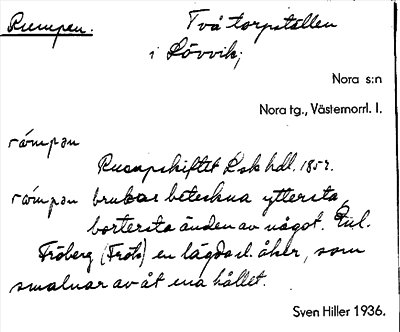 Rumpan.
Två torpställen
i Lövvik;
Nora s:n
Nora tg., Västernorrl. l.
rómpan
Rusapskiftet Lsk hdl. 1857.
rómpan brukar beteckna yttersta,
bortersta änden av något. Enl.
Fröberg (Fröb) en lägda el. åker, som
smalnar av åt ena hållet.
Sven Hiller 1936.